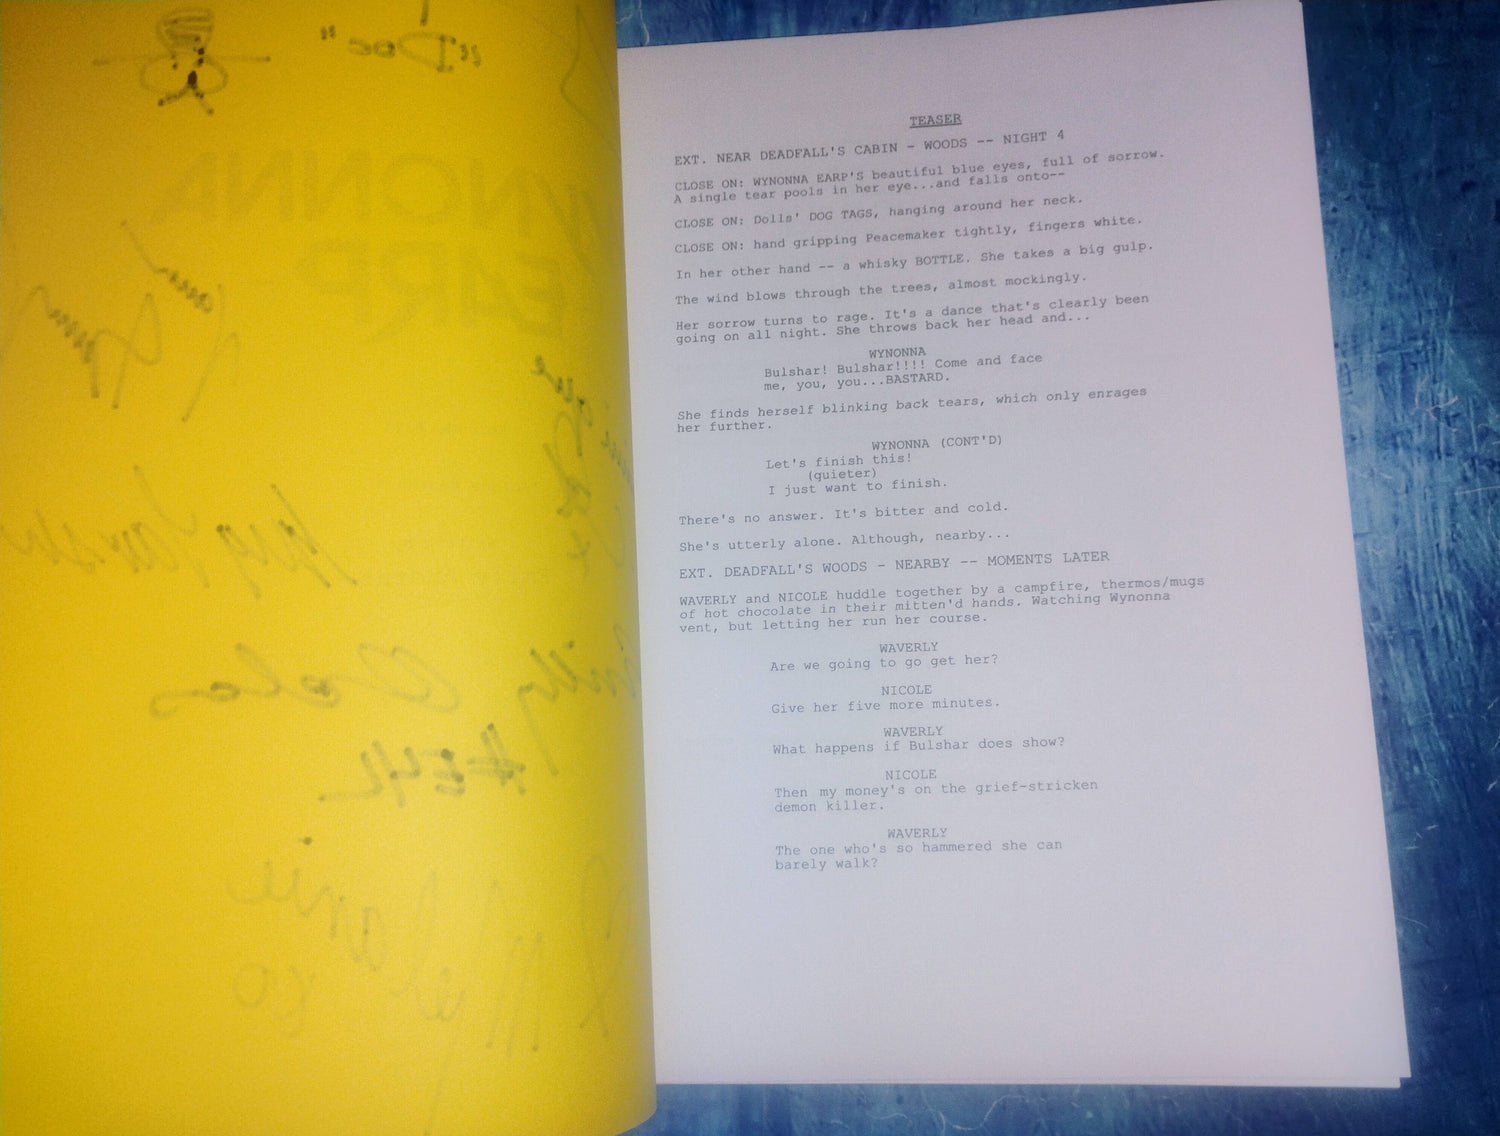 "Doc"
WYNONNA
EARP
Melanie
TEASER
EXT. NEAR DEADFALL'S CABIN - WOODS -- NIGHT 4
CLOSE ON: WYNONNA EARP'S beautiful blue eyes, full of sorrow.
A single tear pools in her eye...and falls onto--
CLOSE ON: Dolls' DOG TAGS, hanging around her neck.
CLOSE ON: hand gripping Peacemaker tightly, fingers white.
In her other hand -- a whisky BOTTLE. She takes a big gulp.
The wind blows through the trees, almost mockingly.
Her sorrow turns to rage. It's a dance that's clearly been
going on all night. She throws back her head and...
WYNONNA
Bulshar! Bulshar!!!! Come and face
me, you, you...BASTARD.
She finds herself blinking back tears, which only enrages
her further.
WYNONNA (CONT'D)
Let's finish this!
(quieter)
I just want to finish.
There's no answer. It's bitter and cold.
She's utterly alone. Although, nearby...
EXT. DEADFALL'S WOODS - NEARBY -- MOMENTS LATER
WAVERLY and NICOLE huddle together by a campfire, thermos/mugs
of hot chocolate in their mitten'd hands. Watching Wynonna
vent, but letting her run her course.
WAVERLY
Are we going to go get her?
NICOLE
Give her five more minutes.
WAVERLY
What happens if Bulshar does show?
NICOLE
Then my money's on the grief-stricken
demon killer.
WAVERLY
The one who's so hammered she can
barely walk?